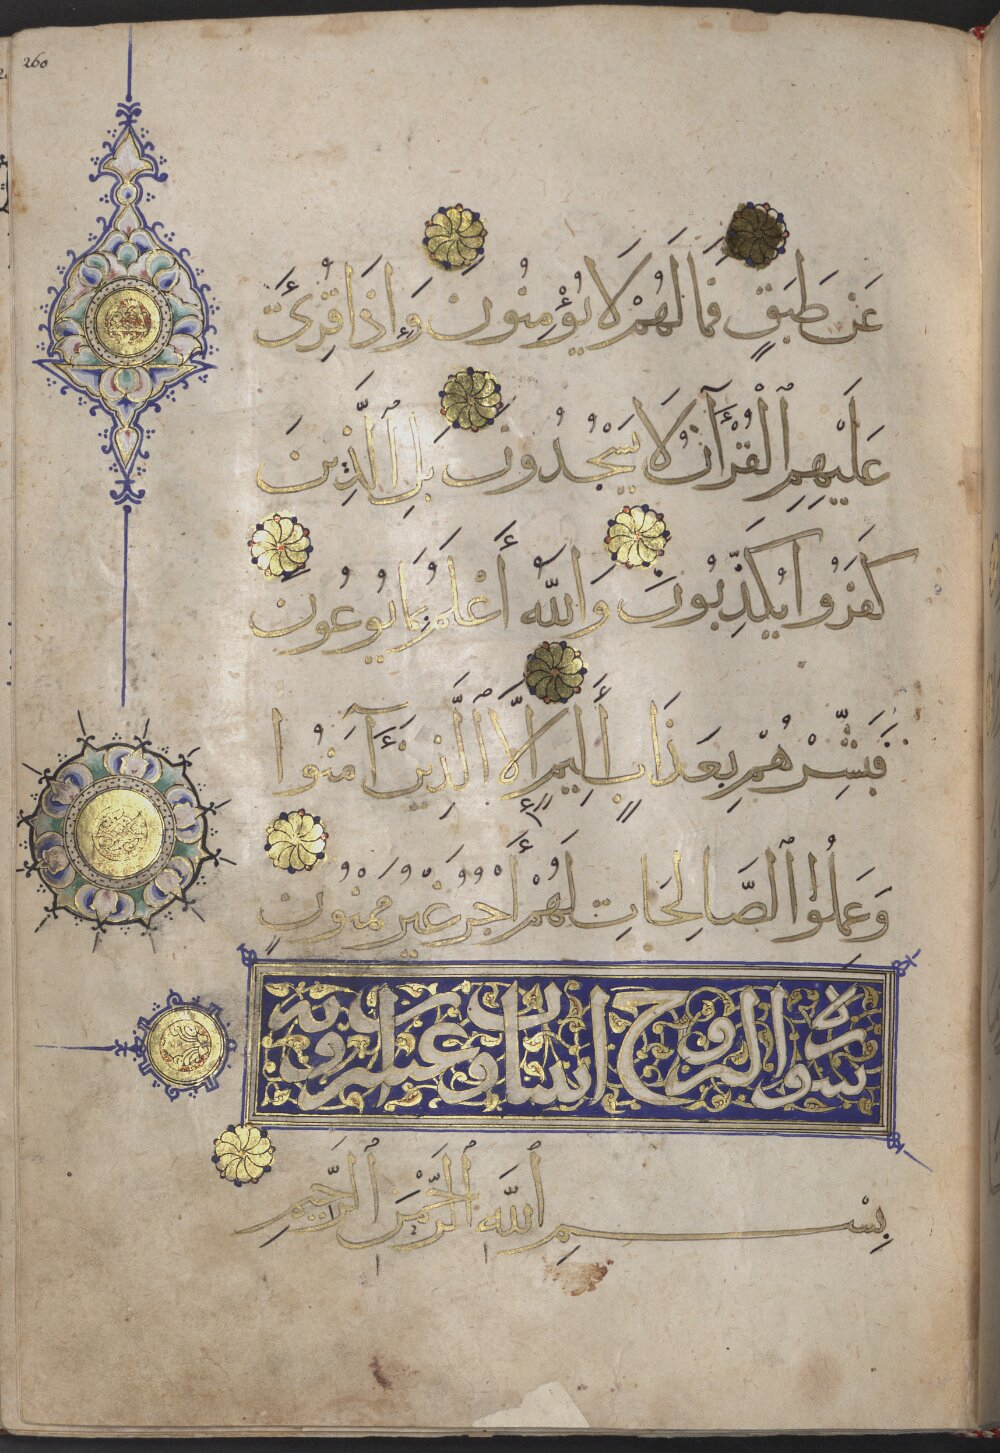 260
عَن طَبَقٍ فَمَا لَهُمْ لَا يُؤْمِنُونَ وَإِذَا قُرِئَ
عَلَيْهِمِ ٱلْقُرْآنُ لَا يَسْجُدُونَ بَلِ ٱلَّذِينَ
كَفَرُوا يُكَذِّبُونَ وَاللَّهُ أَعْلَمُ بِمَا يُوعُونَ
فَبَشِّرْهُمْ بِعَذَابٍ أَلِيمٍ إِلَّا ٱلَّذِينَ آمَنُوا
وَعَمِلُوا ٱلصَّالِحَاتِ لَهُمْ أَجْرٌ غَيْرُ مَمْنُونٍ
سورة البروج اثنان وعشرون
بِسْمِ ٱللَّهِ ٱلرَّحْمَٰنِ ٱلرَّحِيمِ